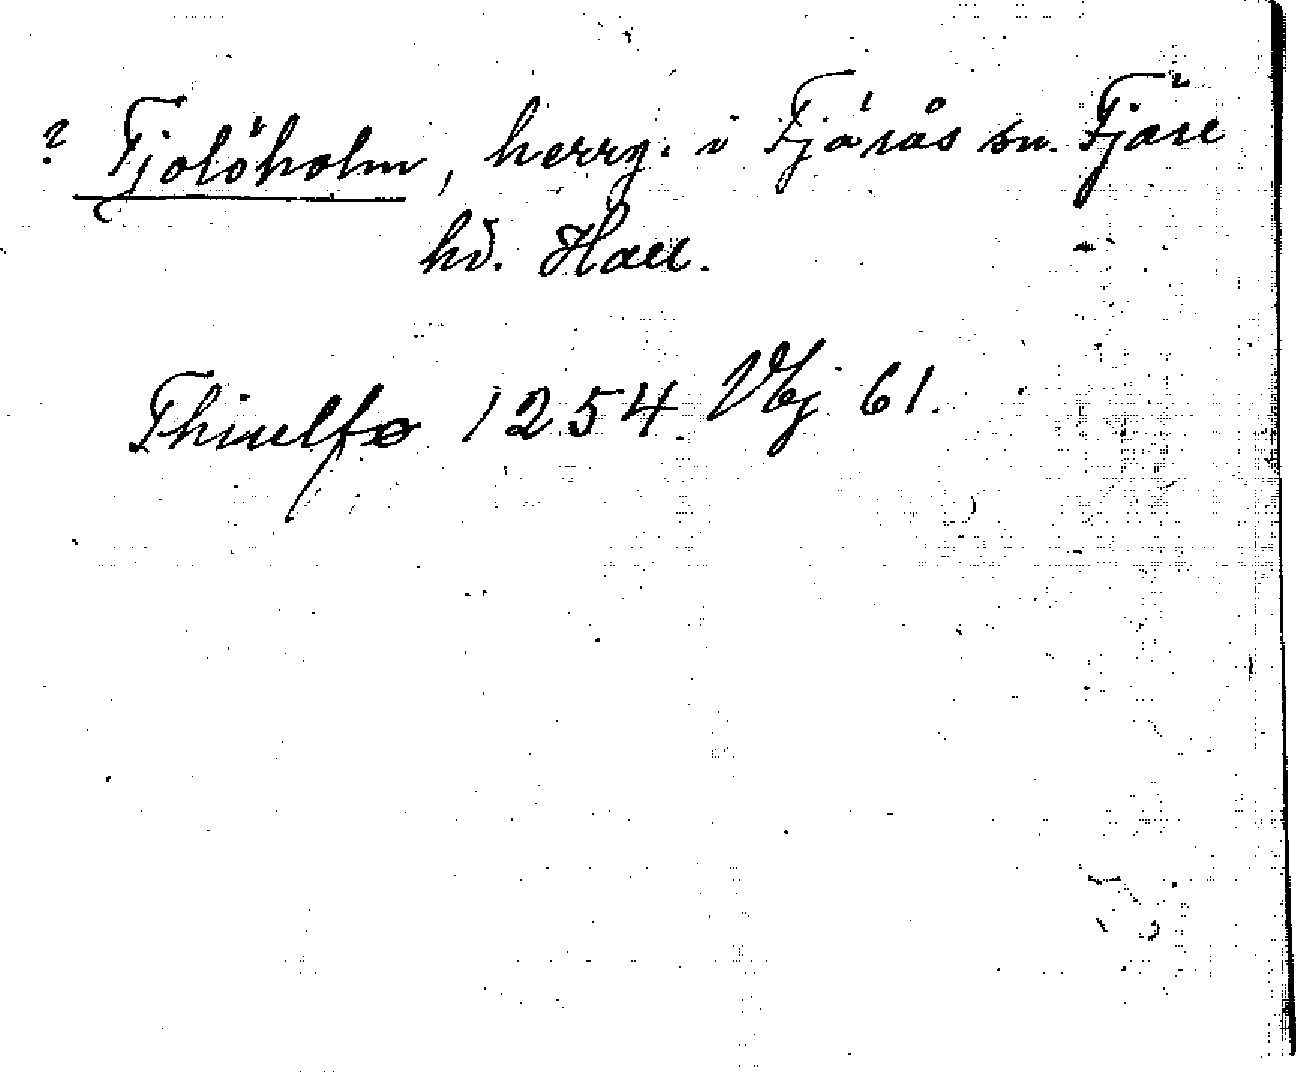 ? Tjolöholm, herrg. i Fjärås sn. Fjäre
hd. Hall.
Thiulfø 1254 Vbj 61.